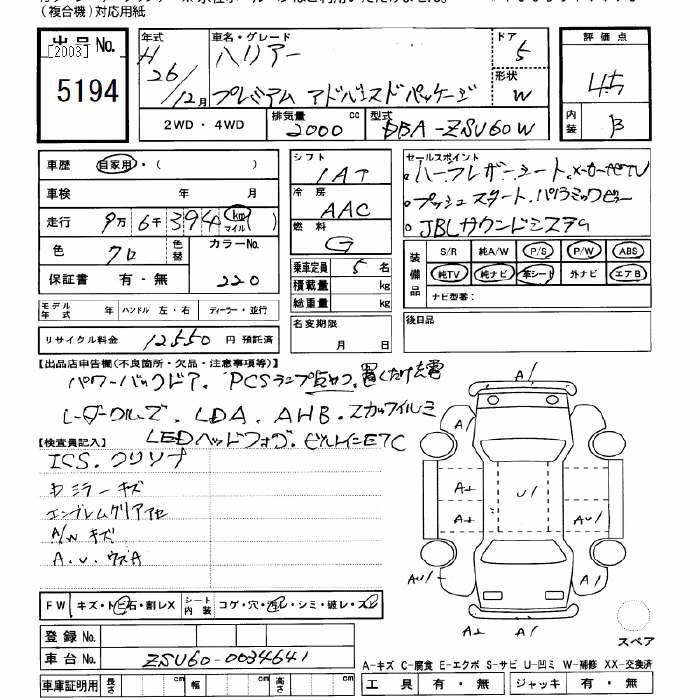 (複合機)対応用紙
出品No.
[2003]
5194
年式
H
26/12月
車名・グレード
ハリアー
プレミアム アドバンスドパッケージ
ドア
5
形状
W
評価点
4.5
内装
B
2WD・4WD
排気量
2000
cc
型式
DBA-ZSU60W
車歴
自家用・( )
車検
年 月
走行
9万 6千 394 km マイル ( )
色
クロ
色替
カラーNo.
220
保証書
有・無
シフト
IAT
冷房
AAC
燃料
G
乗車定員
5名
積載量
kg
総重量
kg
名変期限
月 日
セールスポイント
・ハーフレザーシート、メーカーナビTV
・プッシュスタート、パノラミックビュー
・JBLサウンドシステム
装備品
S/R
純A/W
P/S
P/W
ABS
純TV
純ナビ
革シート
外ナビ
エアB
ナビ型番:
後日品
モデル年式
年
ハンドル
左・右
ディーラー・並行
リサイクル料金
12550円 預託済
【出品店申告欄(不良箇所・欠品・注意事項等)】
パワーバックドア、PCSランプ点灯、置くだけ充電
レーダークルーズ、LDA、AHB、18アルミ
LEDヘッドフォグ、ビルトインETC
【検査員記入】
ICS、クリソナ
ドミラーキズ
エンブレムクリアアセ
A/Wキズ
A.U.ウスA
FW
キズ・トビ石・割レX
シート内装
コゲ・穴・汚レ・シミ・破レ・スレ
登録No.
車台No.
ZSU60-0034641
車庫証明用
長さ
cm
幅
cm
高さ
cm
A1
A1
A1
A1
A1
U1
AU1
AU1
A1
A1
スペア
A-キズ C-腐食 E-エクボ S-サビ U-凹ミ W-補修 XX-交換済
工具
有・無
ジャッキ
有・無